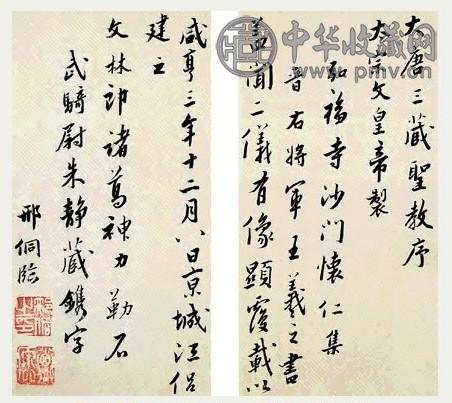 大唐三藏聖教序
太宗文皇帝製
弘福寺沙門懷仁集
晉右將軍王羲之書
蓋聞二儀有像顯覆載以
咸亨三年十二月八日京城法侶
建立
文林郎諸葛神力勒石
武騎尉朱静藏鐫字
邢侗臨
中华收藏网
www.pmvv.cn